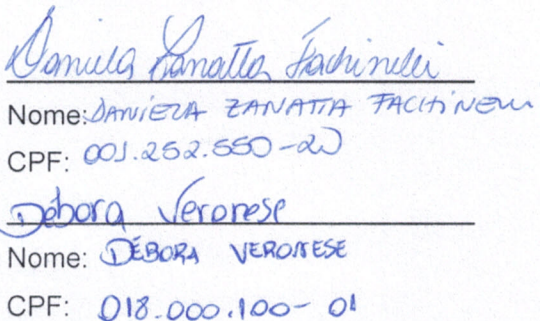 Daniela Zanatta Fachinelli
Nome: DANIELA ZANATTA FACHINELLI
CPF: 001.252.550-20
Débora Veronese
Nome: DÉBORA VERONESE
CPF: 018.000.100-01